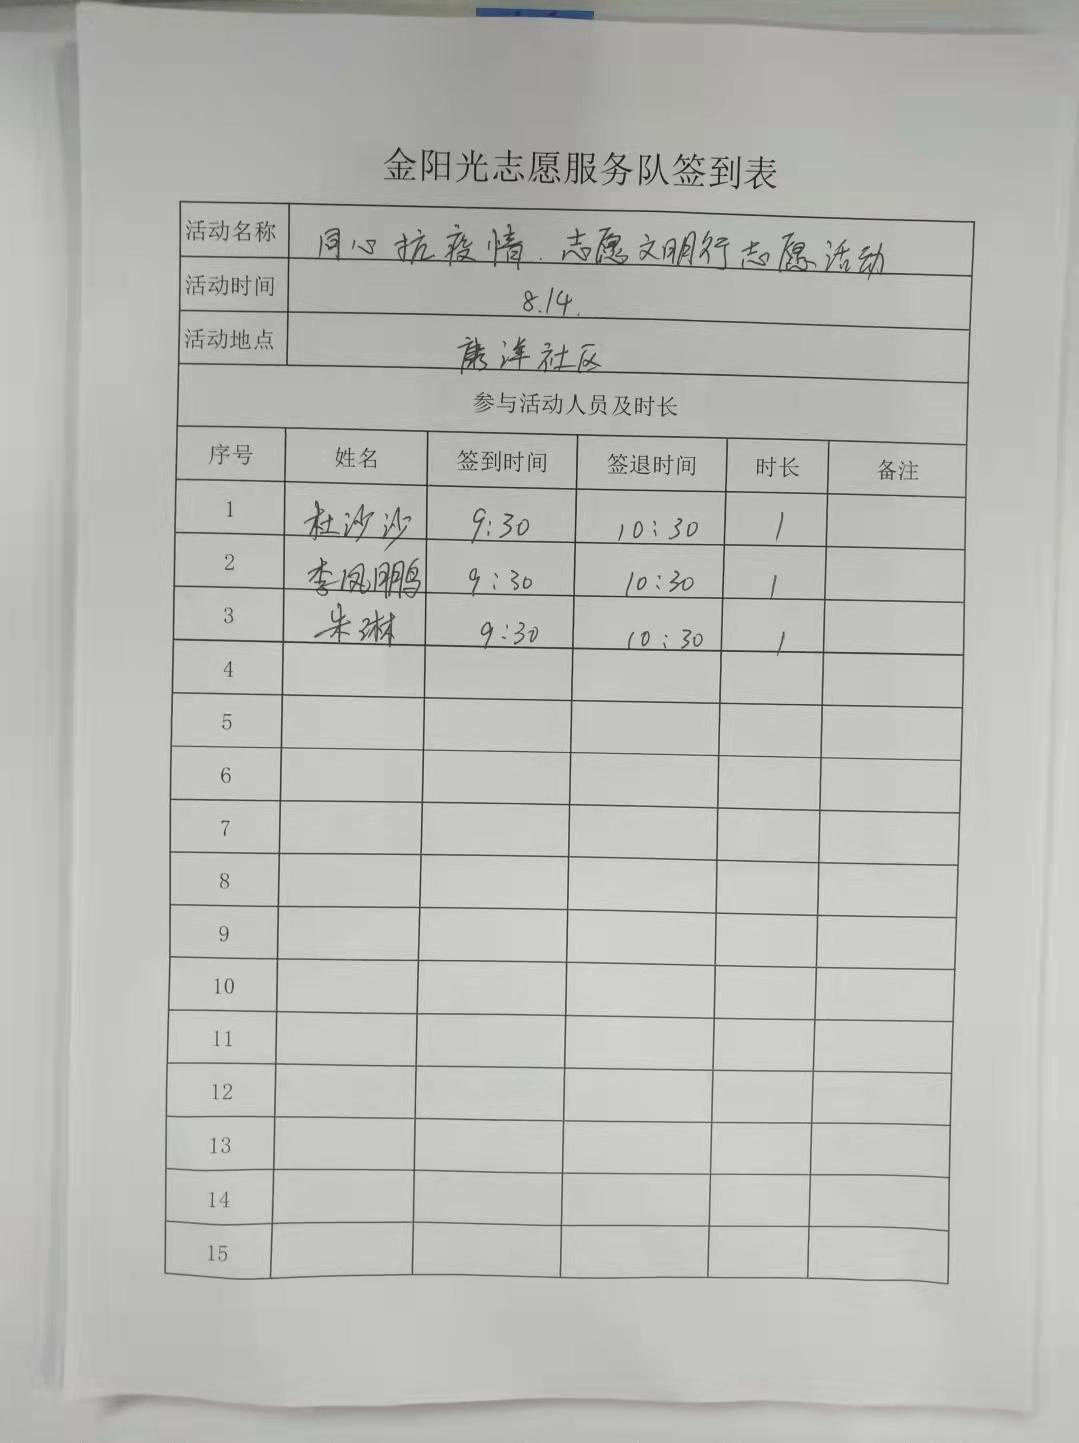 金阳光志愿服务队签到表
活动名称 同心抗疫情.志愿文明行志愿活动
活动时间 8.14.
活动地点 康洋社区
参与活动人员及时长
序号 姓名 签到时间 签退时间 时长 备注
1 杜沙沙 9:30 10:30 1
2 李凤鹏 9:30 10:30 1
3 朱琳 9:30 10:30 1
4
5
6
7
8
9
10
11
12
13
14
15